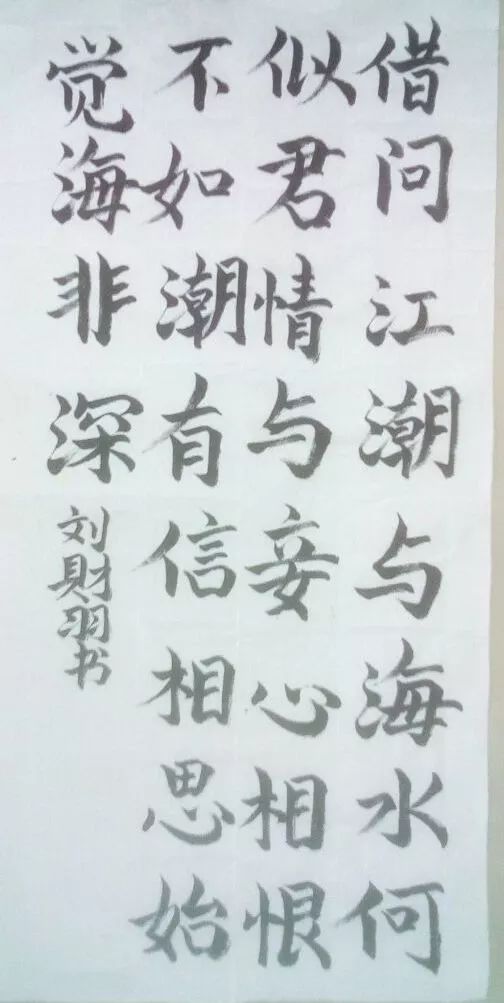 借问江潮与海水何
似君情与妾心相恨
不如潮有信相思始
觉海非深
刘财羽书